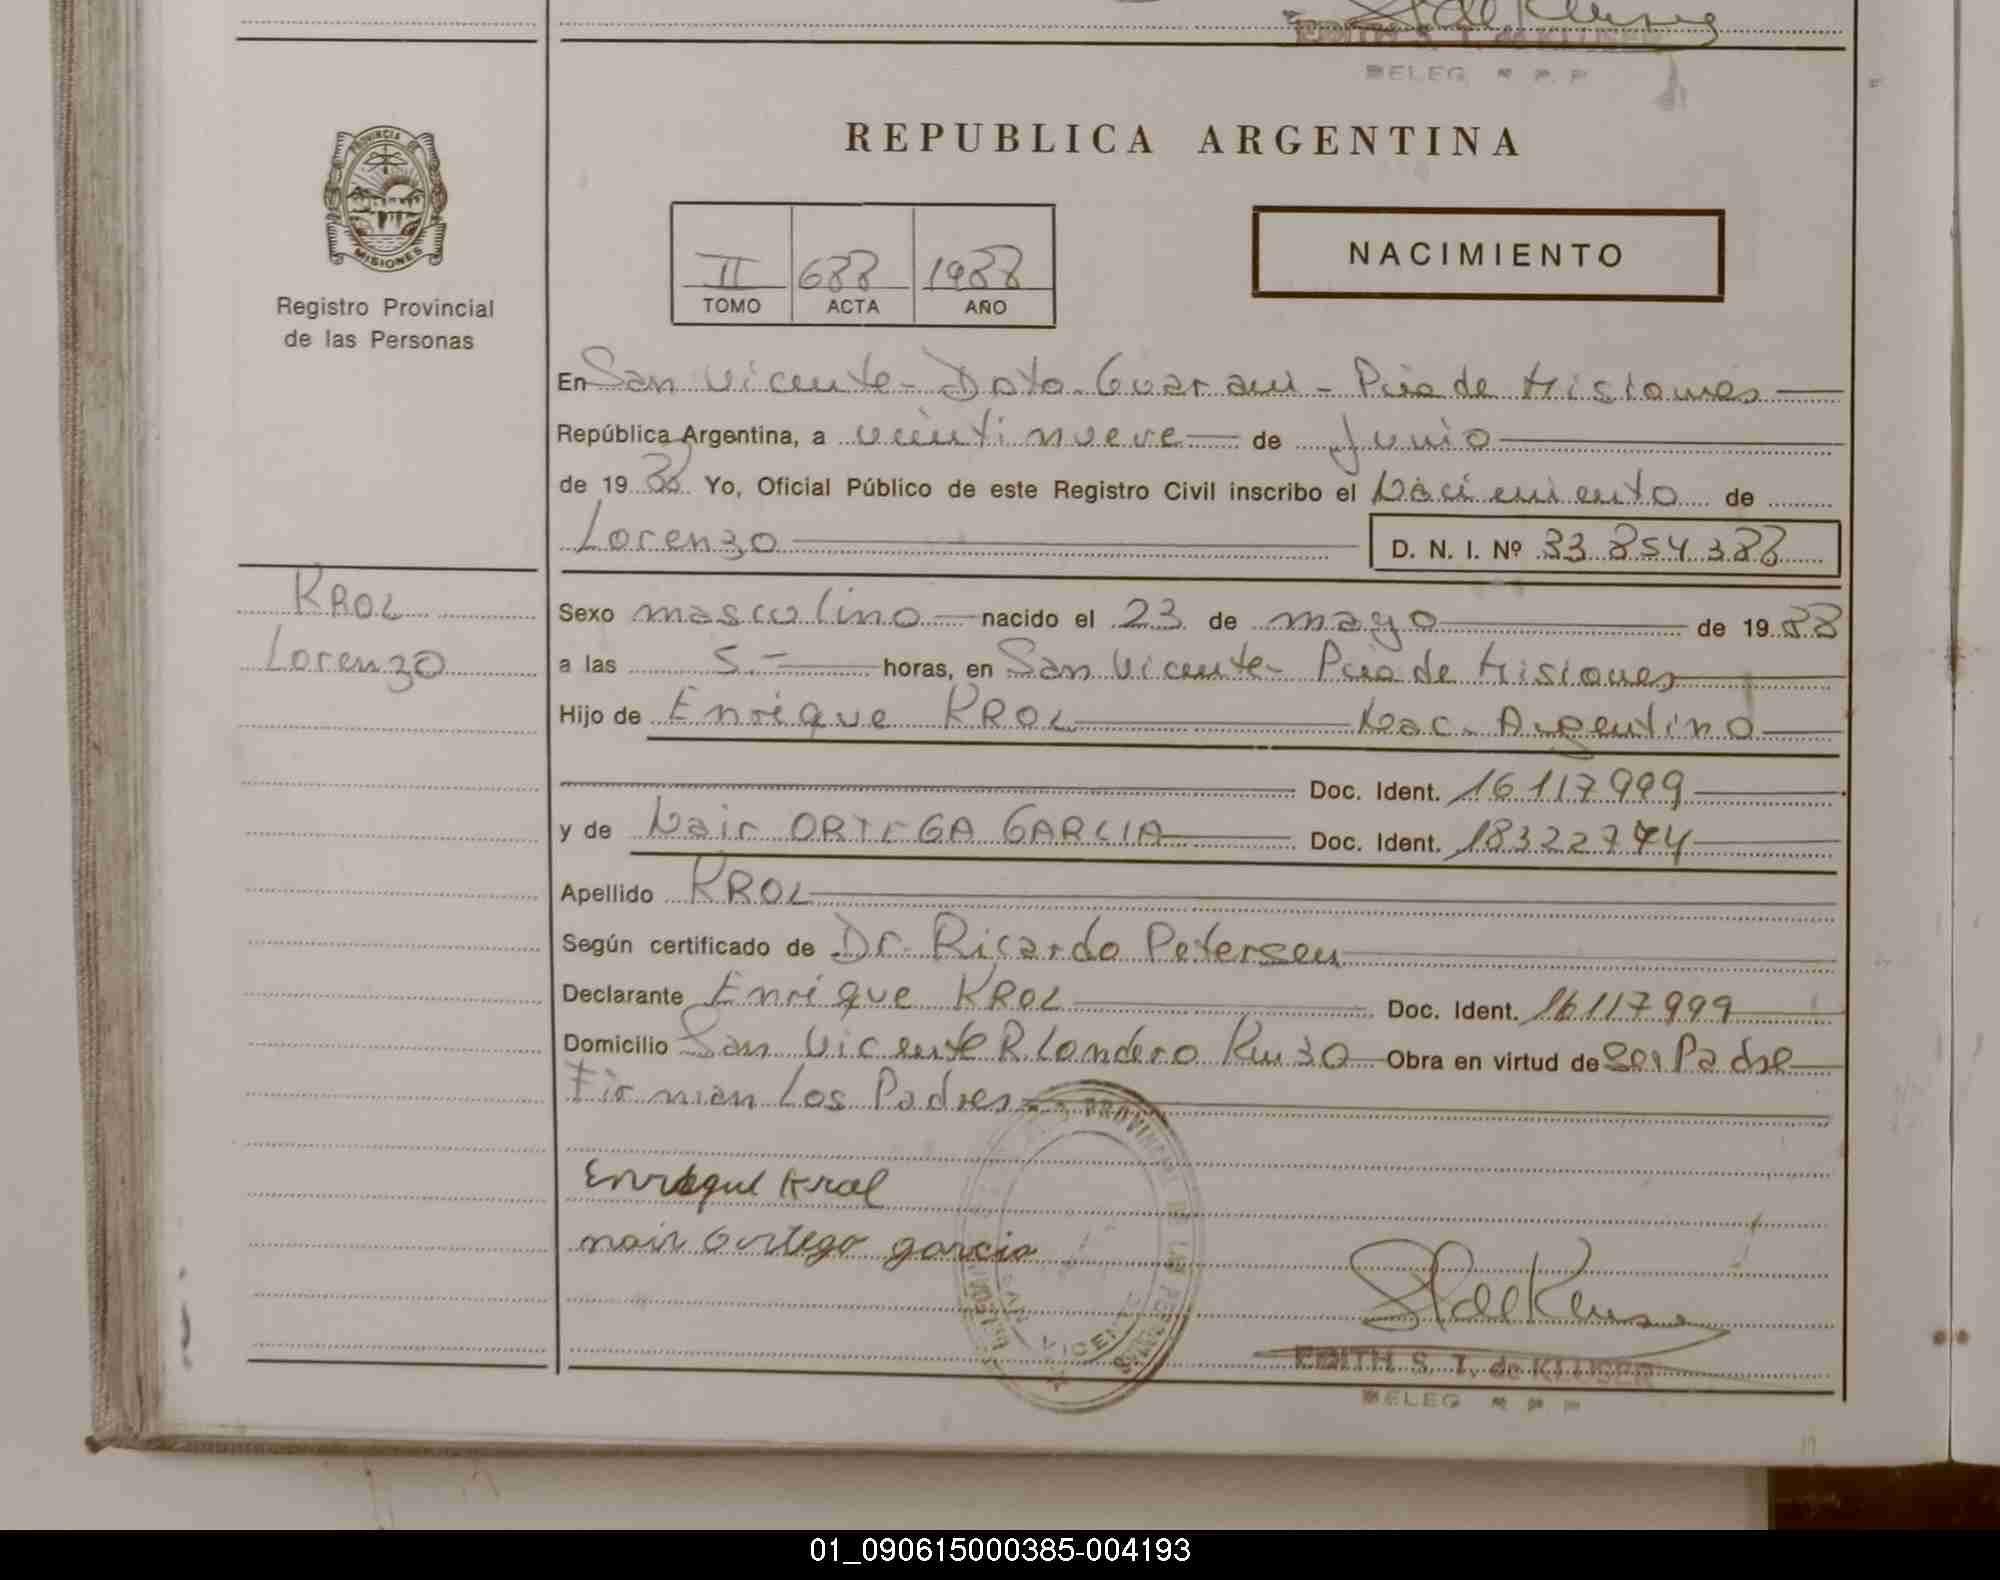 EDITH S. T. de KLUSER
DELEG R P P
PROVINCIA DE
MISIONES
Registro Provincial
de las Personas
REPUBLICA ARGENTINA
II 688 1988
TOMO ACTA AÑO
NACIMIENTO
En San Vicente - Dpto. Guarani - Pcia de Misiones
República Argentina, a veinti nueve de Junio
de 1988 Yo, Oficial Público de este Registro Civil inscribo el Nacimiento de
Lorenzo D. N. I. Nº 33.854.388
KROL
Lorenzo
Sexo masculino nacido el 23 de mayo de 1988
a las 5.- horas, en San Vicente - Pcia de Misiones
Hijo de Enrique KROL Nac. Argentino
Doc. Ident. 16117999
y de Nair ORTEGA GARCIA Doc. Ident. 18322774
Apellido KROL
Según certificado de Dr. Ricardo Petersen
Declarante Enrique KROL Doc. Ident. 16117999
Domicilio San Vicente R. Londero Km 30 Obra en virtud de ser Padre
Firman Los Padres
Enrique Krol
nair Ortega garcia
SAN VICENTE
EDITH S. T. de KLUSER
DELEG R P P
01_090615000385-004193